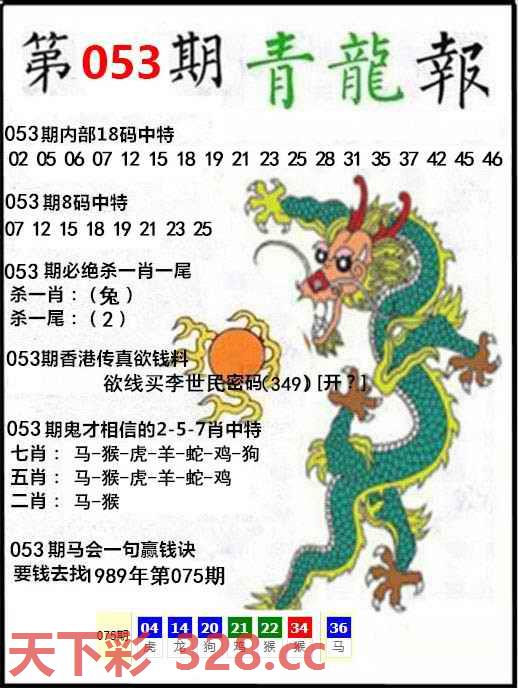 第053期 青龍報
053期内部18码中特
02 05 06 07 12 15 18 19 21 23 25 28 31 35 37 42 45 46
053期8码中特
07 12 15 18 19 21 23 25
053期必绝杀一肖一尾
杀一肖：（兔）
杀一尾：（2）
053期香港传真欲钱料
欲线买李世民密码(349)[开?]
053期鬼才相信的2-5-7肖中特
七肖：马-猴-虎-羊-蛇-鸡-狗
五肖：马-猴-虎-羊-蛇-鸡
二肖：马-猴
053期马会一句赢钱诀
要钱去找1989年第075期
075期 04 14 20 21 22 34 36
虎 龙 狗 鸡 猴 猴 马
天下彩 328.cc